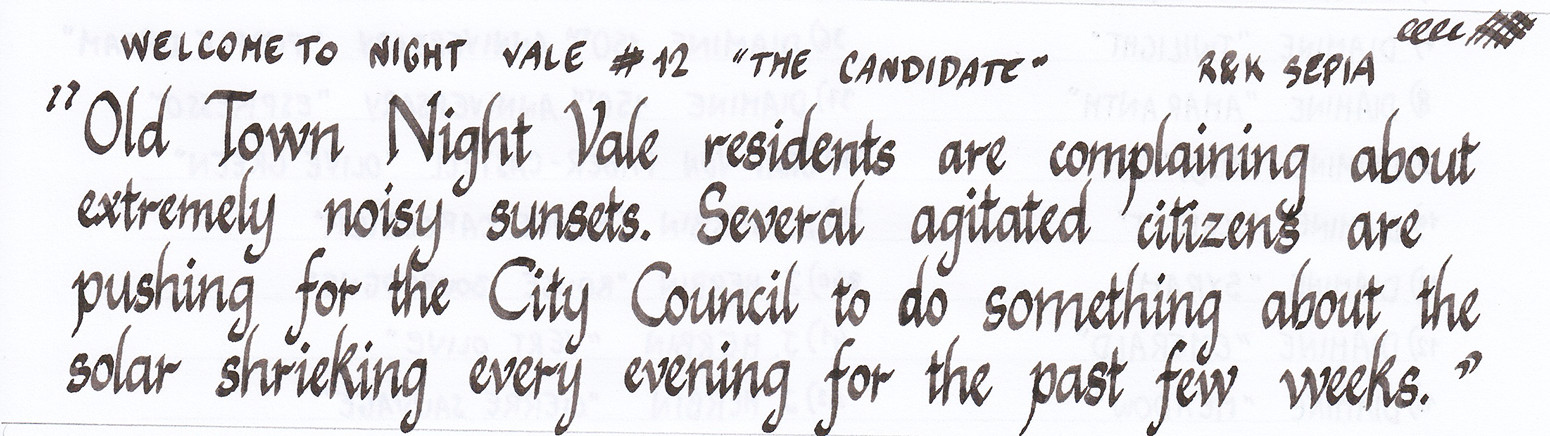 WELCOME TO NIGHT VALE #12 "THE CANDIDATE" R&K SEPIA
"Old Town Night Vale residents are complaining about
extremely noisy sunsets. Several agitated citizens are
pushing for the City Council to do something about the
solar shrieking every evening for the past few weeks."